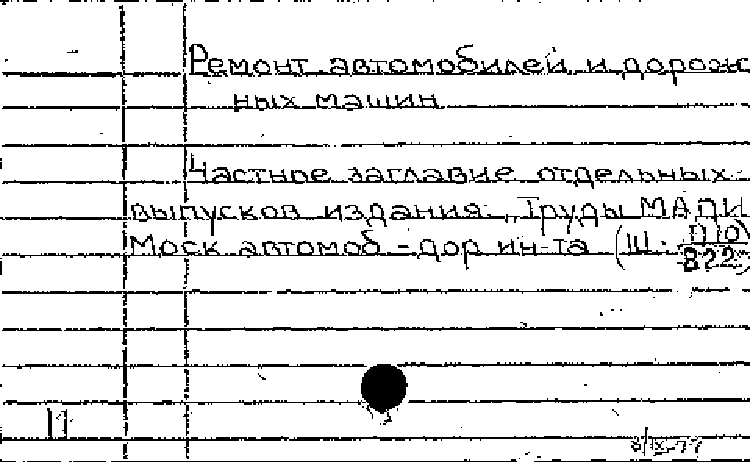 Ремонт автомобилей и дорож
ных машин
Частное заглавие отдельных
выпусков издания: „Труды МАДИ
Моск автомоб-дор ин-та (Ш.
822